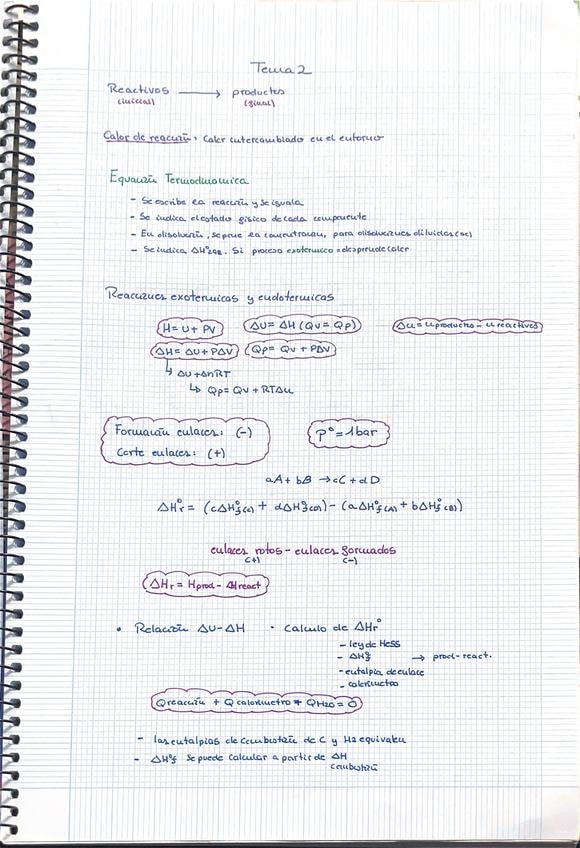 Tema 2
Reactivos → productos
(inicial) (final)
Calor de reacción: calor intercambiado en el entorno
Equación Termodinámica
- Se escribe la reacción y se iguala
- Se indica el estado físico de cada componente
- En disolución, se pone la concentración, para disoluciones diluidas (ac)
- Se indica ΔH°298. Si proceso exotérmico = desprende calor
Reacciones exotérmicas y endotérmicas
H = U + PV ΔU = ΔH (Qv = Qp) Δu = u producto - u reactivos
ΔH = ΔU + PΔV Qp = Qv + PΔV
↳ ΔU + ΔnRT
↳ Qp = Qv + RTΔn
Formación enlaces: (-) P° = 1 bar
Corte enlaces: (+)
aA + bB → cC + dD
ΔH°r = (cΔH°f(C) + dΔH°f(D)) - (aΔH°f(A) + bΔH°f(B))
enlaces rotos - enlaces formados
(+) (-)
ΔHr = Hprod - Hreact
• Relación ΔU-ΔH · Cálculo de ΔHr°
- ley de Hess
- ΔH°f → prod-react.
- entalpía de enlace
- calorímetro
Q reacción + Q calorímetro + QH2O = 0
- las entalpías de combustión de C y H2 equivalen
- ΔH°f se puede calcular a partir de ΔH
combustión